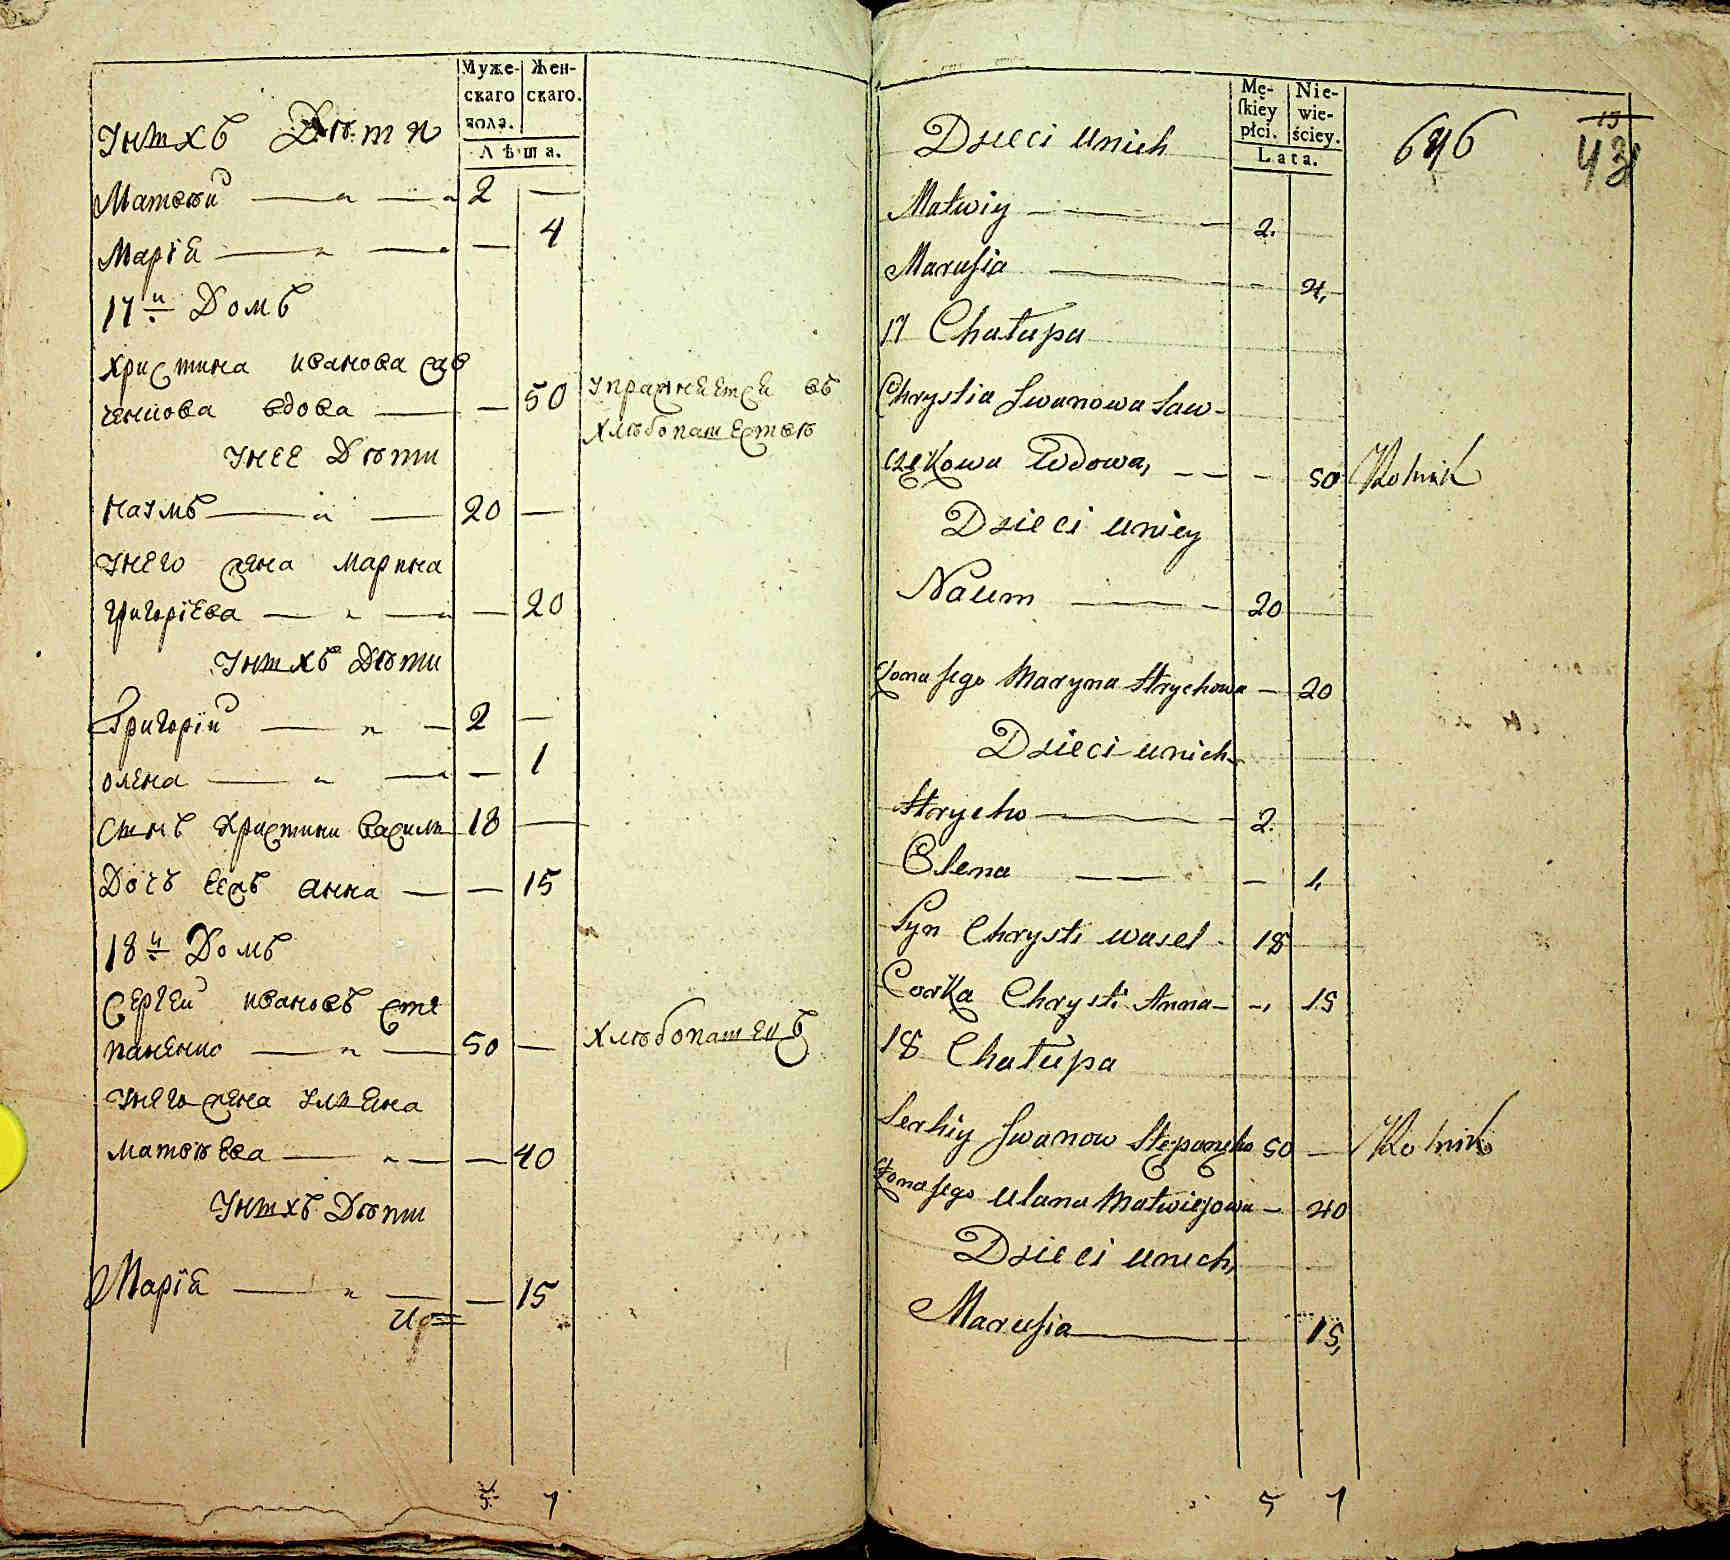 Муже-
скаго
пола.
Жен-
скаго.
Лѣта.
Унихъ Дѣти
Матвѣй — „ — „ 2 —
Марія — „ — „ — 4
17й Домъ
Христина иванова сав
ченкова вдова — — 50 упражняется въ
хлѣбопашествѣ
Унее Дѣти
Наумъ — „ — 20 —
Унего жена Марина
григоріева — „ — — 20
Унихъ Дѣти
Григорій — „ — 2 —
олена — „ — — 1
Сынъ Христини Василь 18 —
Дочь Анна — — 15
18й Домъ
Сергей ивановъ сте
паненко — „ — 50 — Хлѣбопашецъ
Унего жена Уляна
матвѣева — „ — — 40
Унихъ Дѣти
Марія — „ — — 15
5 7
Mę-
ſkiey
płci.
Nie-
wie-
ściey.
Lata.
646
15
43
Dzieci unich
Matwiy — — 2.
Marusia — — 4,
17 Chałupa
Chrystia Iwanowa Saw-
czękowa Wdowa, — — - 50 Rolnik
Dzieci uniey
Naum — - 20
Żona jego Maryna Hrychowa — 20
Dzieci unich
Hrycko — 2.
Olena — — — 1,
Syn Chrysti Wasel - 18
Corka Chrysti Anna — - 15
18 Chałupa
Serhiy Iwanow Stepanęko 50 — Rolnik
Żona jego Ulana Matwiejowa — 40
Dzieci unich,
Marusia — 15,
5 7